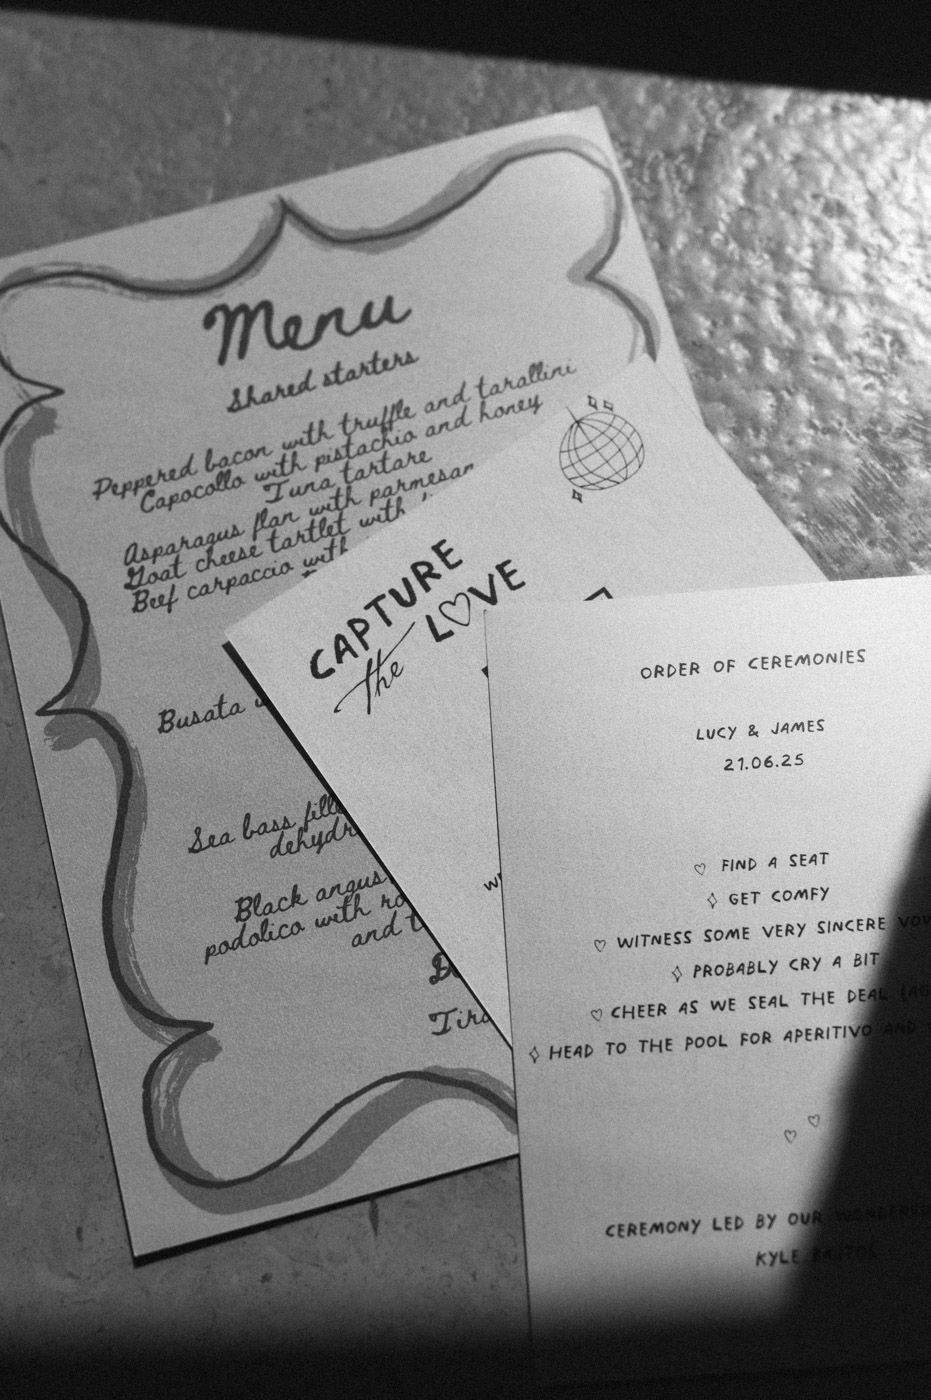 Menu
Shared starters
Peppered bacon with truffle and tarallini
Capocollo with pistachio and honey
Tuna tartare
Asparagus flan with parmesan
Goat cheese tartlet with
Beef carpaccio with
Busata
Sea bass
Black angus
podolico with
and
CAPTURE
the LOVE
ORDER OF CEREMONIES
LUCY & JAMES
21.06.25
♡ FIND A SEAT
✧ GET COMFY
♡ WITNESS SOME VERY SINCERE
✧ PROBABLY CRY A BIT
♡ CHEER AS WE SEAL THE DEAL
✧ HEAD TO THE POOL FOR APERITIVO AND
CEREMONY LED BY OUR
KYLE